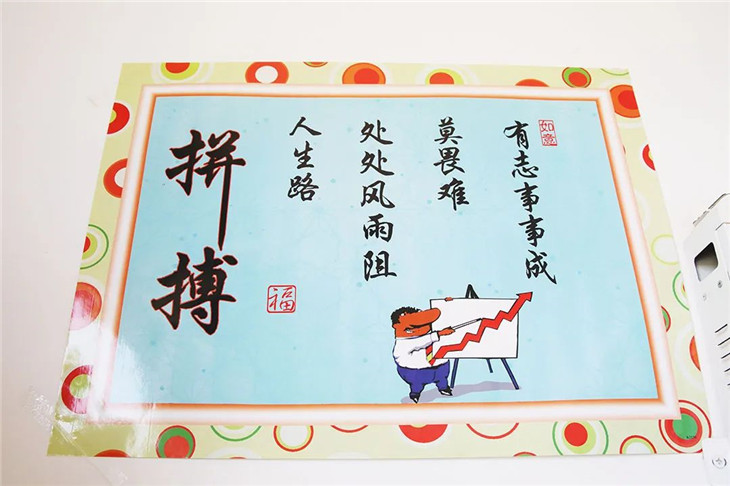 拼搏
人生路
处处风雨阻
莫畏难
有志事事成
如意
福